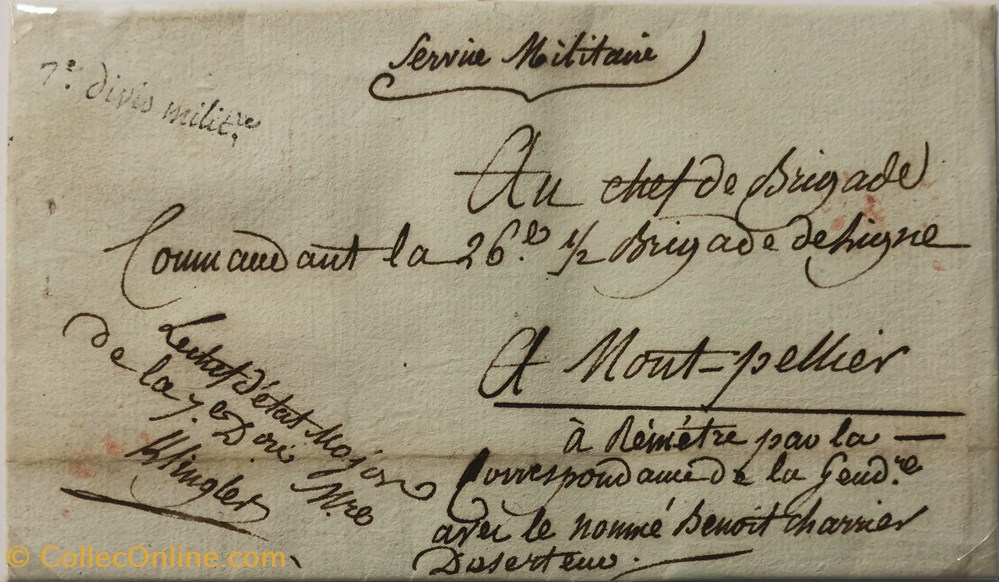 Service Militaire
7e. divis milit.re
Au chef de Brigade
Commandant la 26.e 1/2 Brigade de Ligne
A Mont-pellier
à Rémètre par la
Correspondance de la Gend.re
avec le nommé Benoit Charrier
Deserteur.
Le chef d'état Major
de la 7e Don Mre
Klingler
© CollecOnline.com